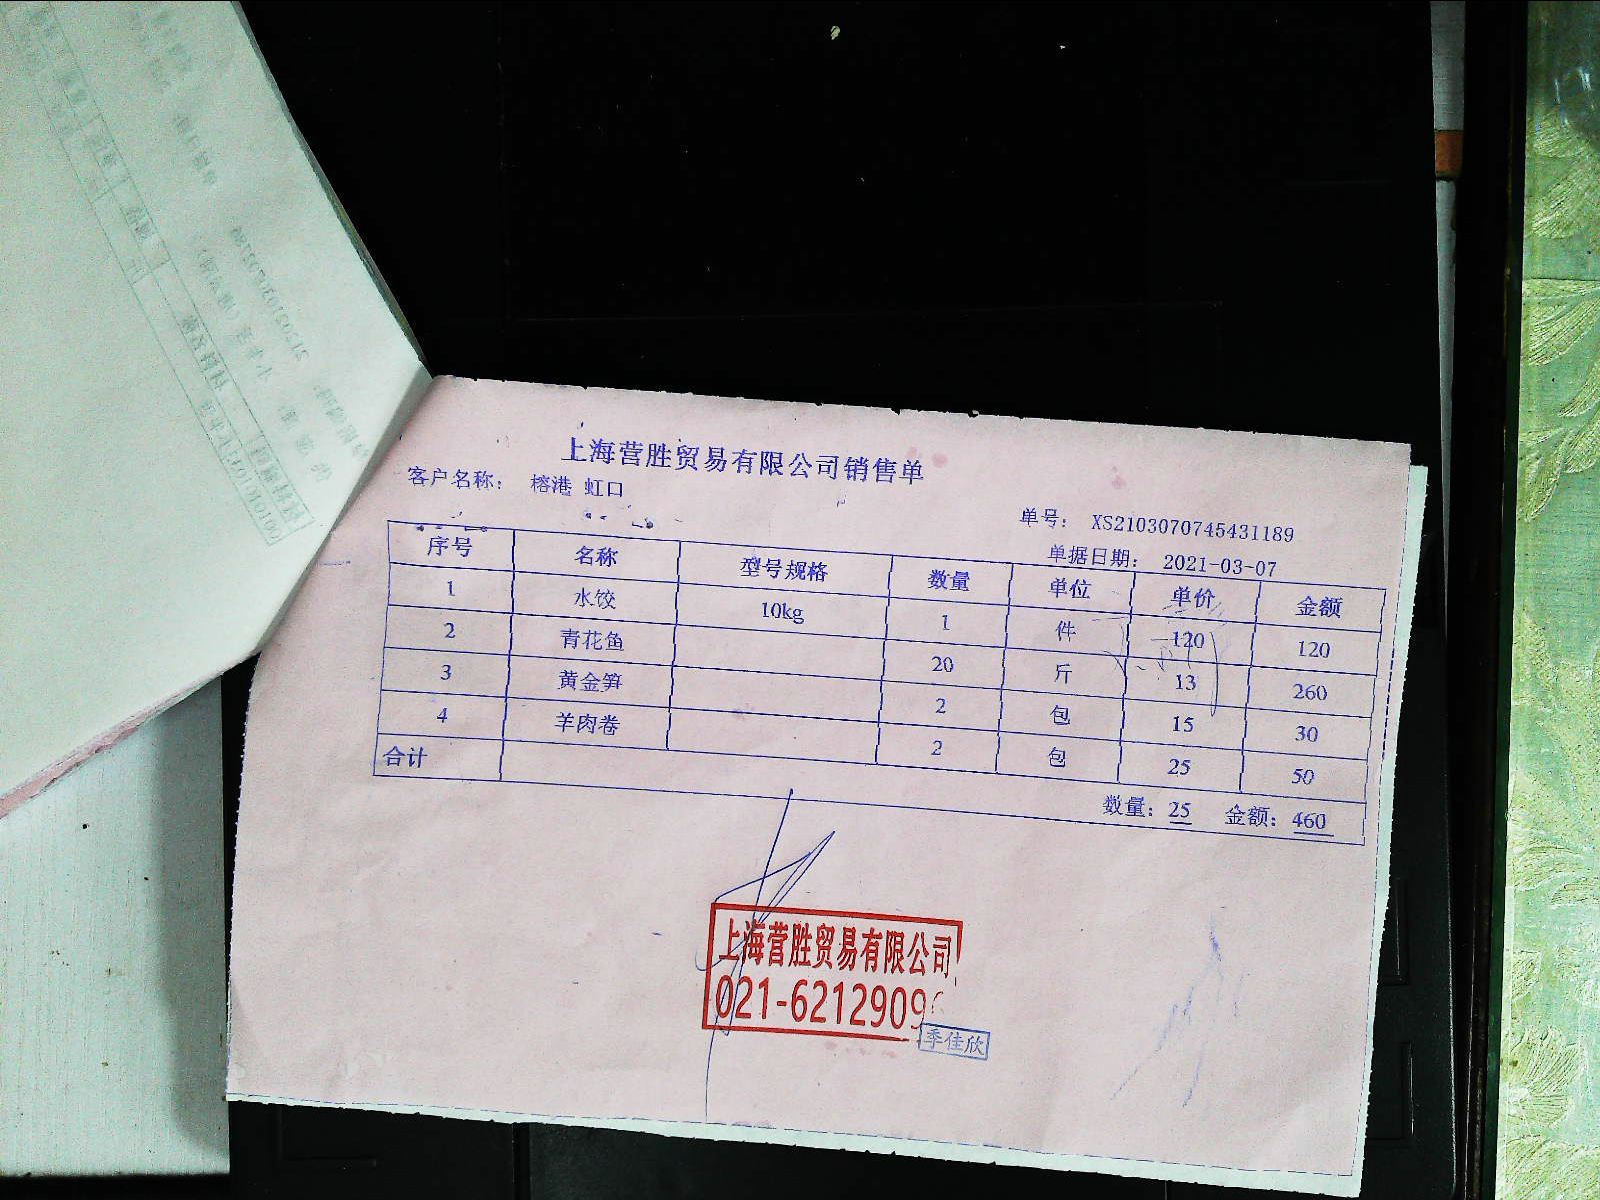 上海营胜贸易有限公司销售单
客户名称： 榕港 虹口
单号： XS2103070745431189
单据日期： 2021-03-07
序号 名称 型号规格 数量 单位 单价 金额
1 水饺 10kg 1 件 120 120
2 青花鱼 20 斤 13 260
3 黄金笋 2 包 15 30
4 羊肉卷 2 包 25 50
合计
数量：25 金额：460
上海营胜贸易有限公司
021-6212909
季佳欣